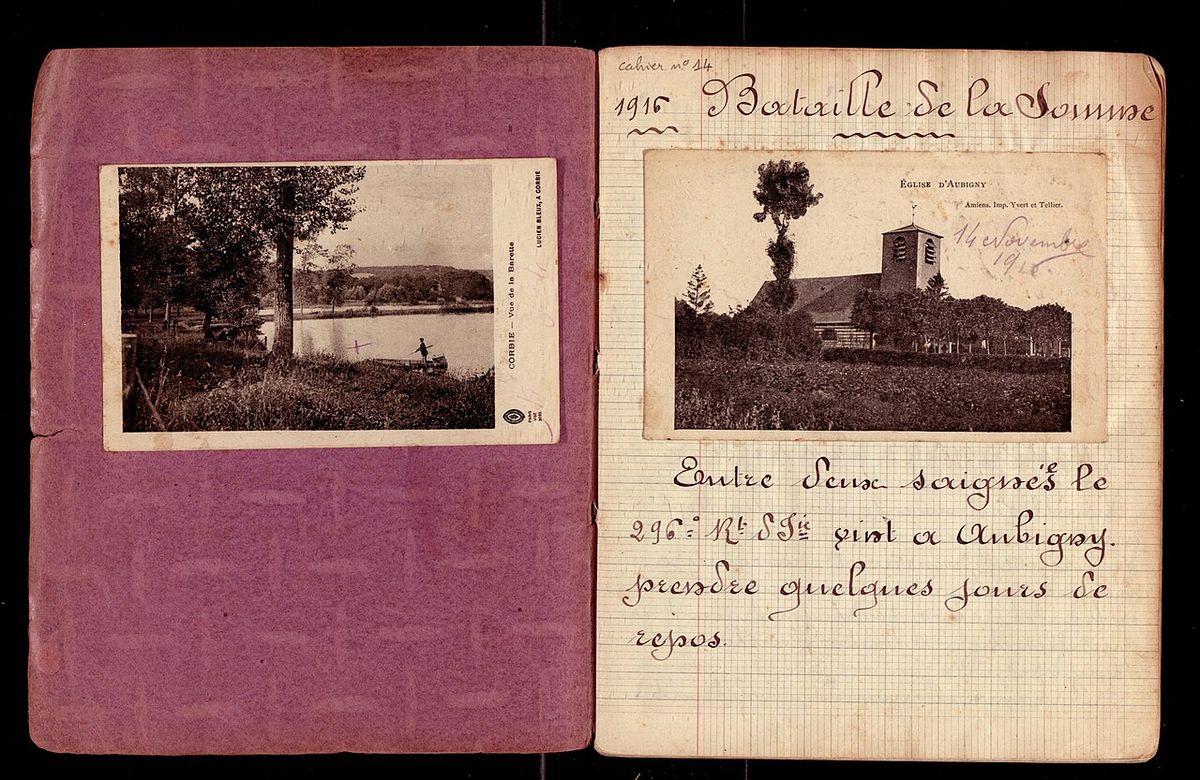 CORBIE — Vue de la Barette
LUCIEN BLEUX, A CORBIE
cahier nº 14
1916 Bataille de la Somme
ÉGLISE D'AUBIGNY
Amiens. Imp. Yvert et Tellier.
14 Novembre
Entre deux saignées le
296e Rt d'Iie vint a Aubigny.
prendre quelques jours de
repos.